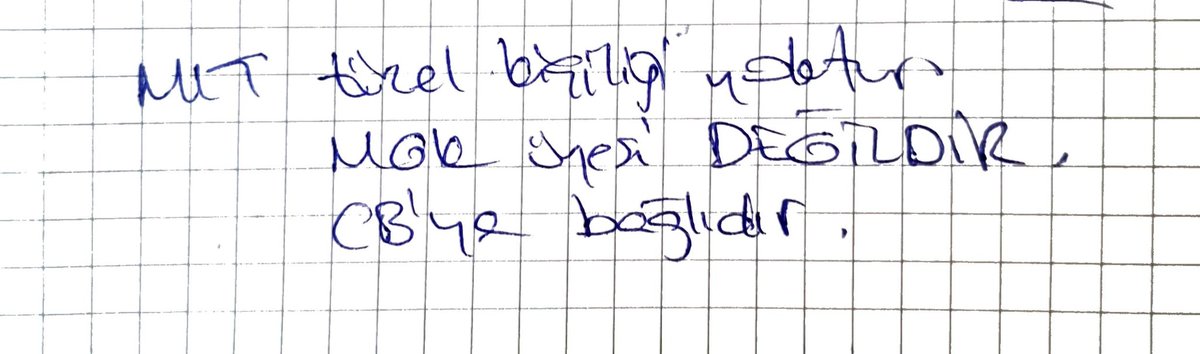 MIT tüzel kişiliği yoktur
MGK üyesi DEĞİLDİR.
CB'ye bağlıdır.